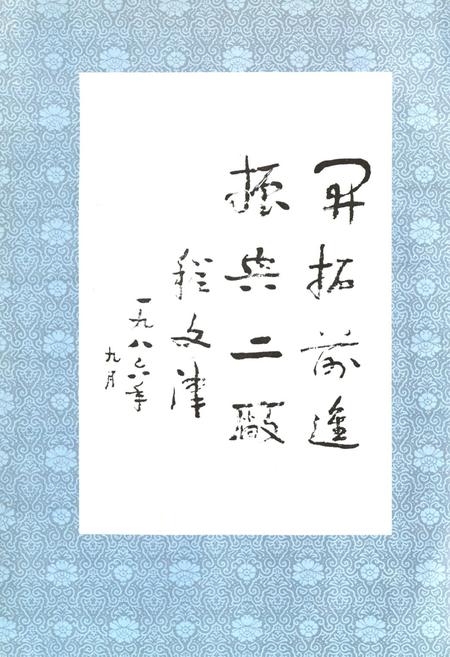 開拓前進
振興二厰
程文津
一九八六年
九月